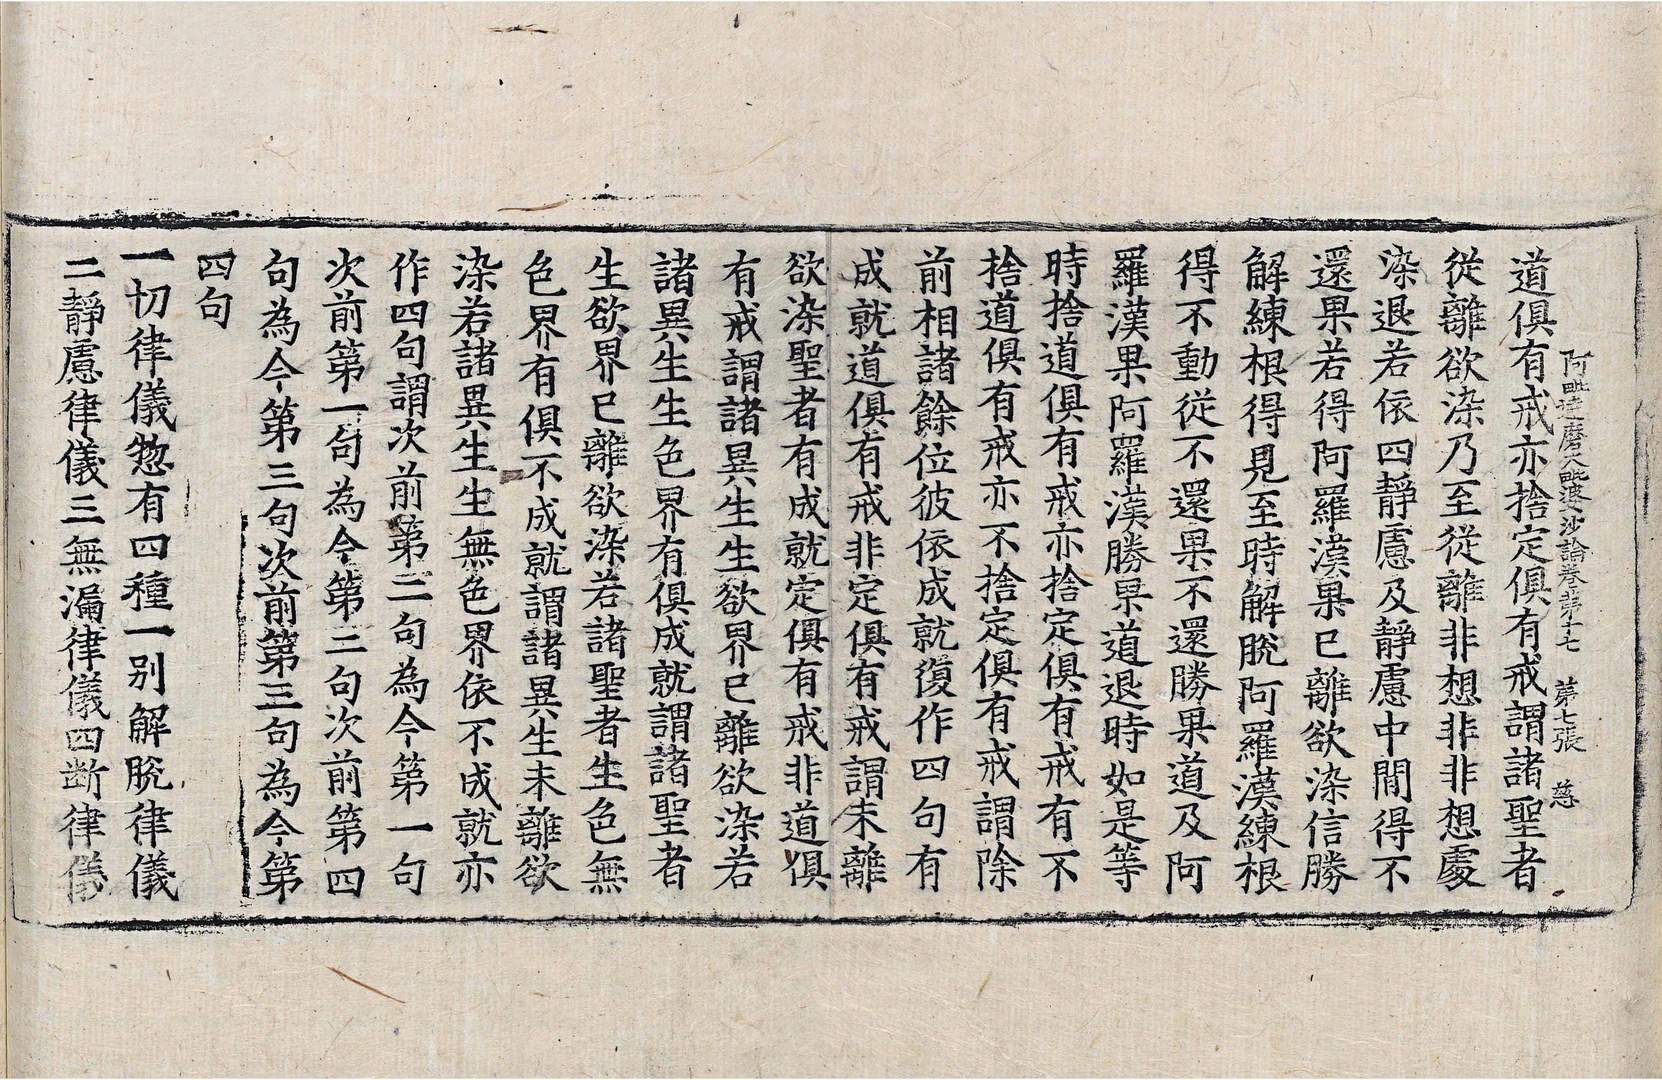 阿毗達磨大毗婆沙論卷第十七 第七張 慈
道俱有戒亦捨定俱有戒謂諸聖者
從離欲染乃至從離非想非非想處
染退若依四靜慮及靜慮中閒得不
還果若得阿羅漢果已離欲染信勝
解練根得見至時解脫阿羅漢練根
得不動從不還果不還勝果道及阿
羅漢果阿羅漢勝果道退時如是等
時捨道俱有戒亦捨定俱有戒有不
捨道俱有戒亦不捨定俱有戒謂除
前相諸餘位彼依成就復作四句有
成就道俱有戒非定俱有戒謂未離
欲染聖者有成就定俱有戒非道俱
有戒謂諸異生生欲界已離欲染若
諸異生生色界有俱成就謂諸聖者
生欲界已離欲染若諸聖者生色無
色界有俱不成就謂諸異生未離欲
染若諸異生生無色界依不成就亦
作四句謂次前第二句為今第一句
次前第一句為今第二句次前第四
句為今第三句次前第三句為今第
四句
一切律儀惣有四種一别解脫律儀
二靜慮律儀三無漏律儀四斷律儀